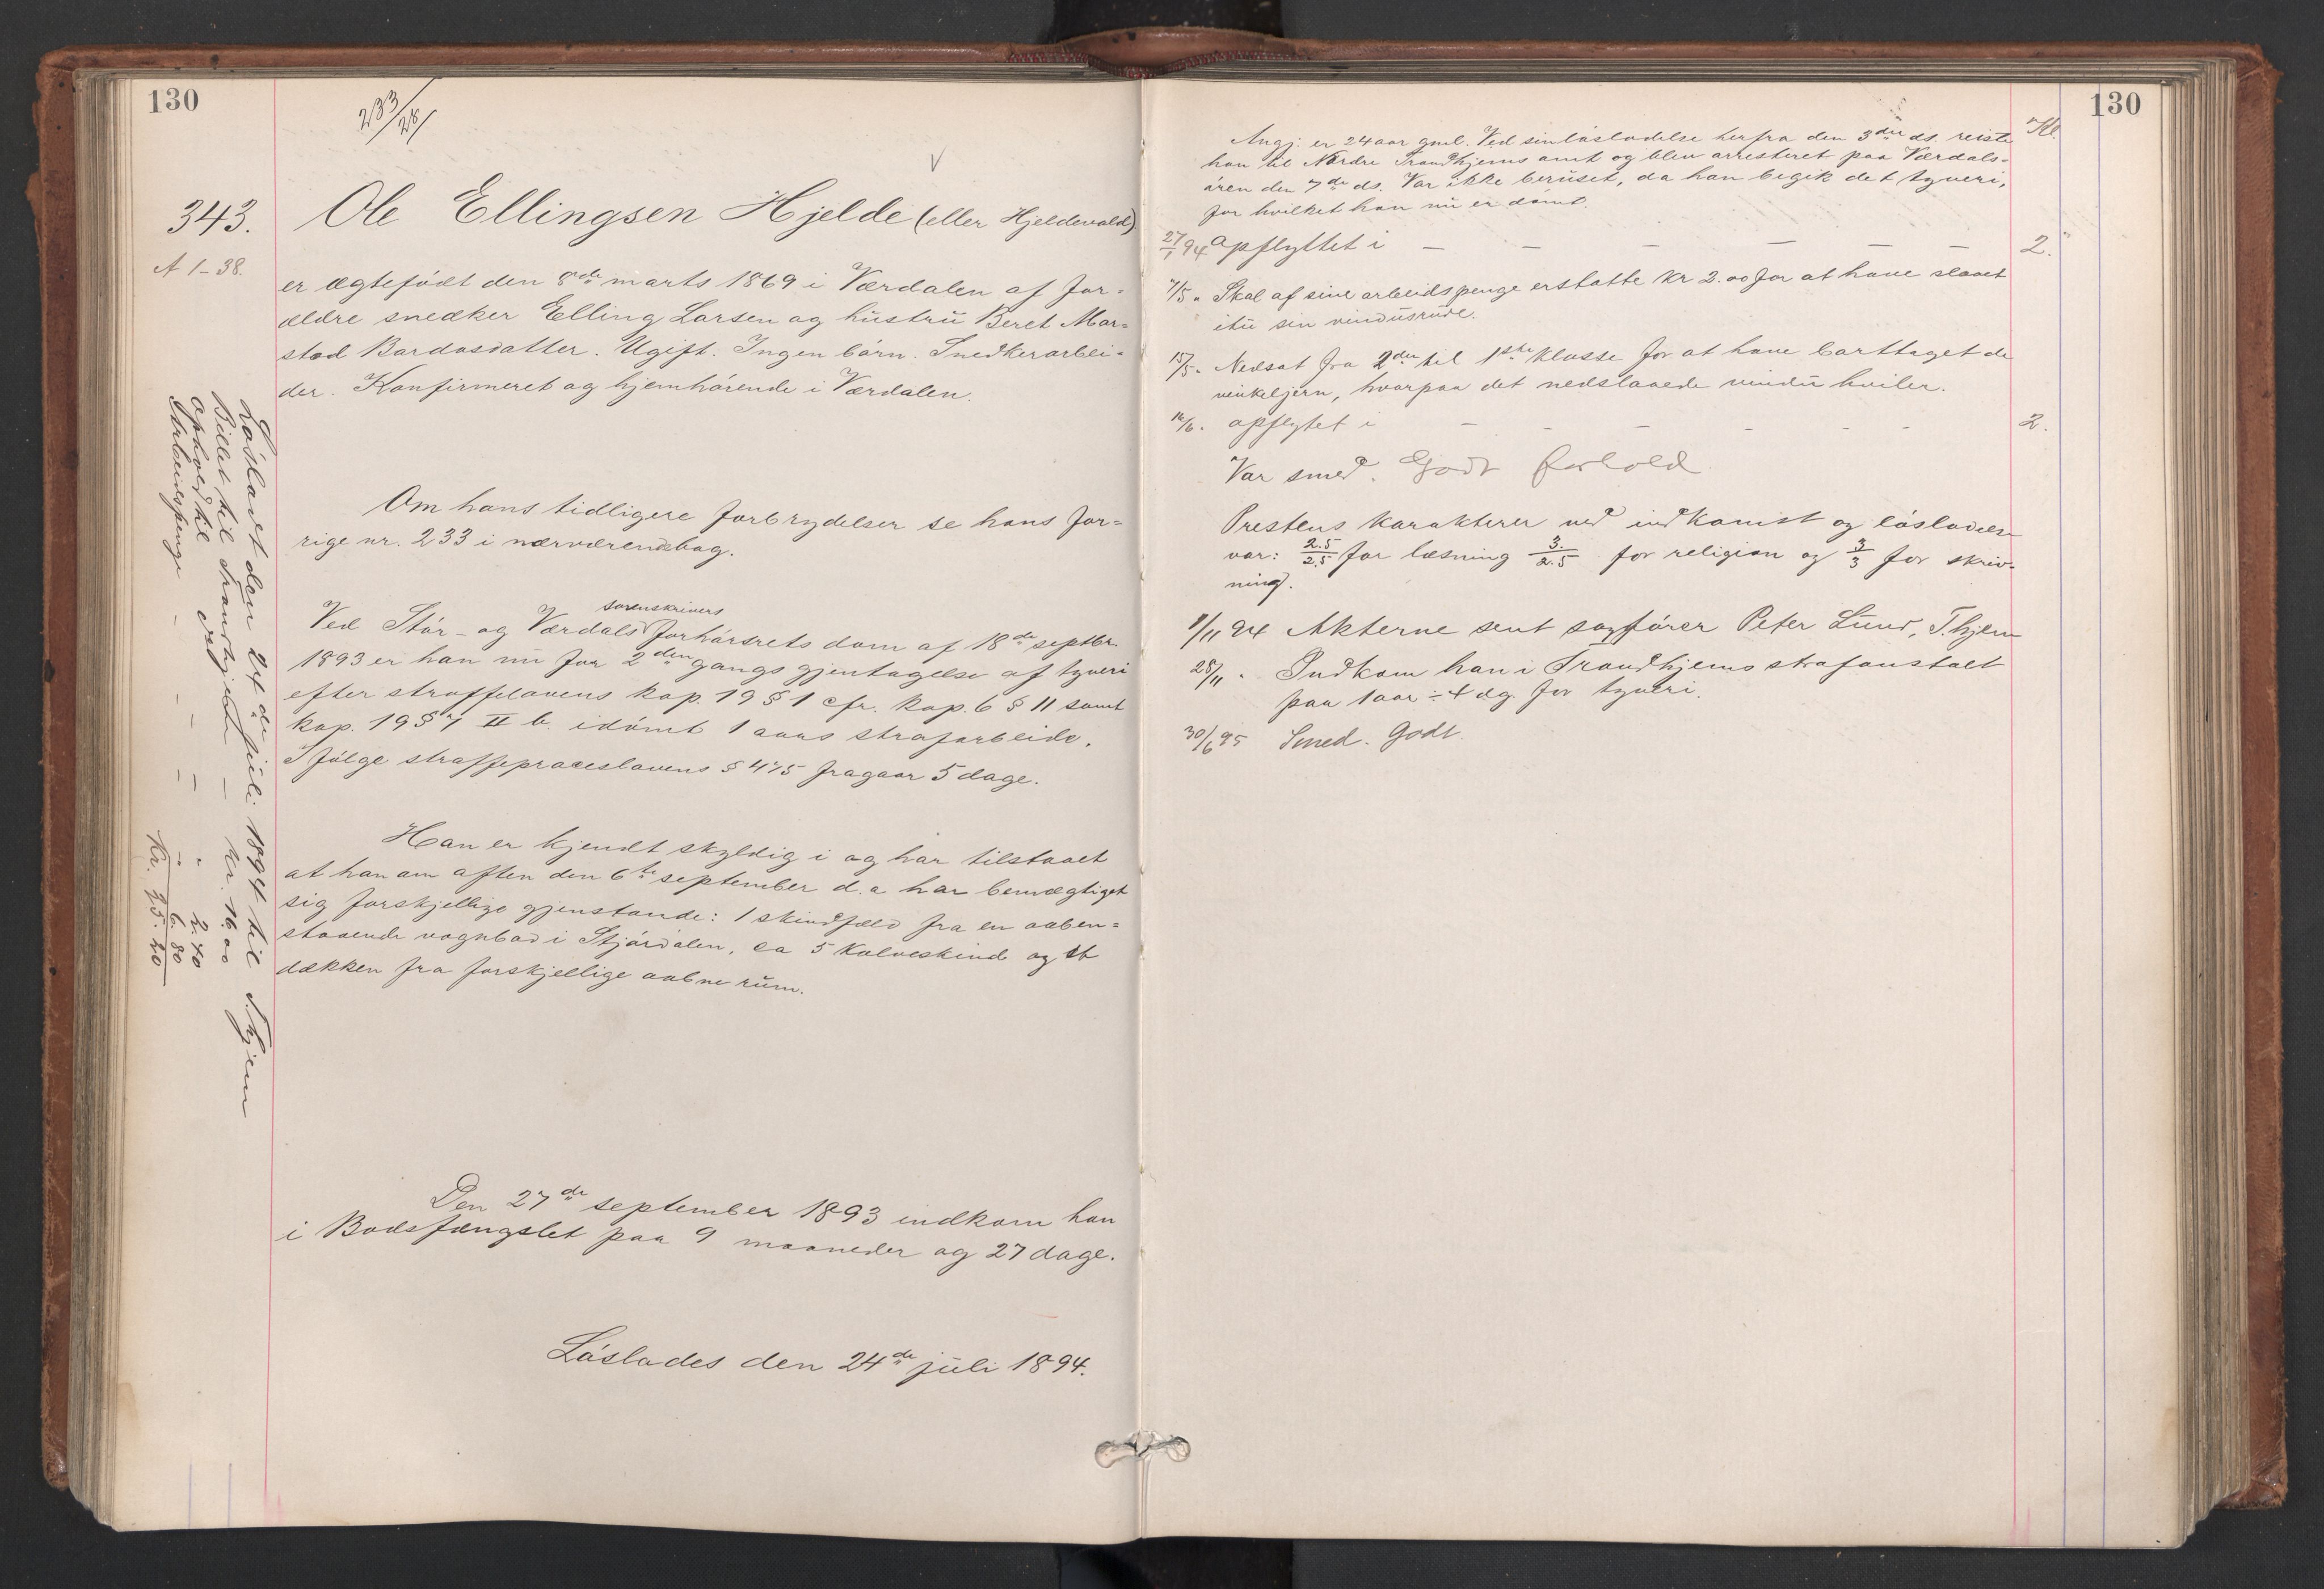 130
233/28
343. Ole Ellingsen Hjelde (eller Hjeldevald)
A 1-38.
er ægtefödt den 8de marts 1869 i Værdalen af for-
ældre snedker Elling Larsen og hustru Beret Mar-
stad Bardosdatter. Ugift. Ingen börn. Snedkerarbei-
der. Konfirmeret og hjemhörende i Værdalen.
Om hans tidligere forbrydelser se hans for-
rige nr. 233 i nærværende bog.
sorenskrivers
Ved Stör- og Værdals forhörsrets dom af 18de septbr.
1893 er han nu for 2den gangs gjentagelse af tyveri
efter straffelovens kap. 19 § 1 cfr. kap. 6 § 11 samt
kap. 19 § 7 II b. idömt 1 aars strafarbeide.
I fölge straffeproceslovens § 475 fragaar 5 dage.
Han er kjendt skyldig i og har tilstaaet
at han om aften den 6te september d.a har bemægtiget
sig forskjellige gjenstande: 1 skindfæld fra en aaben-
staaende vognbod i Stjördalen, ca 5 kalveskind og et
dækken fra forskjellige aabne rum.
Den 27de september 1893 indkom han
i Bodsfængslet paa 9 maaneder og 27 dage.
Löslades den 24de juli 1894.
Lösladt den 24de juli 1894 til T.hjem
Billet til Trondhjem — Kr. 16.00
Ophold til ved — — " 2.40
Arbeidspenge — — — " 6.80
Kr. 25.20
130
Kl.
Angj: er 24 aar gml. Ved sin löslodelse herfra den 3die ds. reiste
han til Nordre Trondhjems amt og blev arresteret paa Værdals-
ören den 7de ds. Var ikke beruset, da han begik det tyveri,
for hvilket han nu er dömt.
27/1 94 Opflyttet i — — — — — — 2.
7/5 " Skal af sine arbeidspenge erstatte kr 2.00 for at have slaaet
itu sin vindusrude.
15/5 " Nedsat fra 2den til 1ste klasse for at have borttaget de
vinkeljern, hvorpaa det nedslaaede vindu hviler.
14/6 " opflytet i — — — — — — 2.
Var smed. Godt forhold
Prestens karakterer ved indkomst og löslodelse
var: 2.5/2.5 for læsning 3./2.5 for religion og 3/3 for skriv-
ning.
8/11 94 Akterne sent sagförer Peter Lund, T.hjem
28/11 " Indkom han i Trondhjems strafanstalt
paa 1 aar ÷ 4 dg. for tyveri.
30/6 95 Smed. Godt.